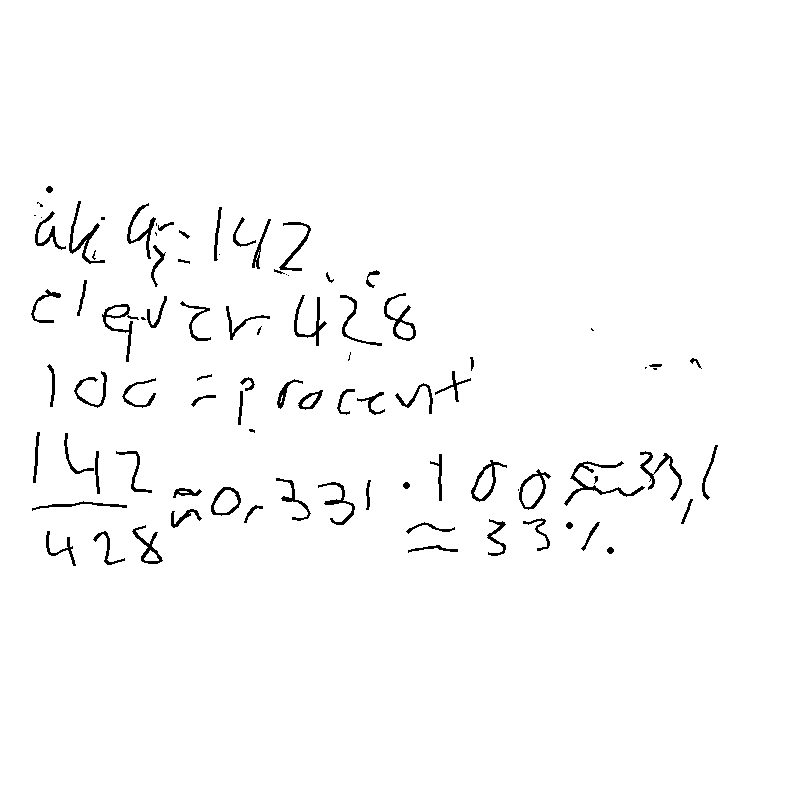 åk 9 = 142
elever 428
100 = procent
142/428 ≈ 0,331 · 100 ≈ 33,1
≈ 33%